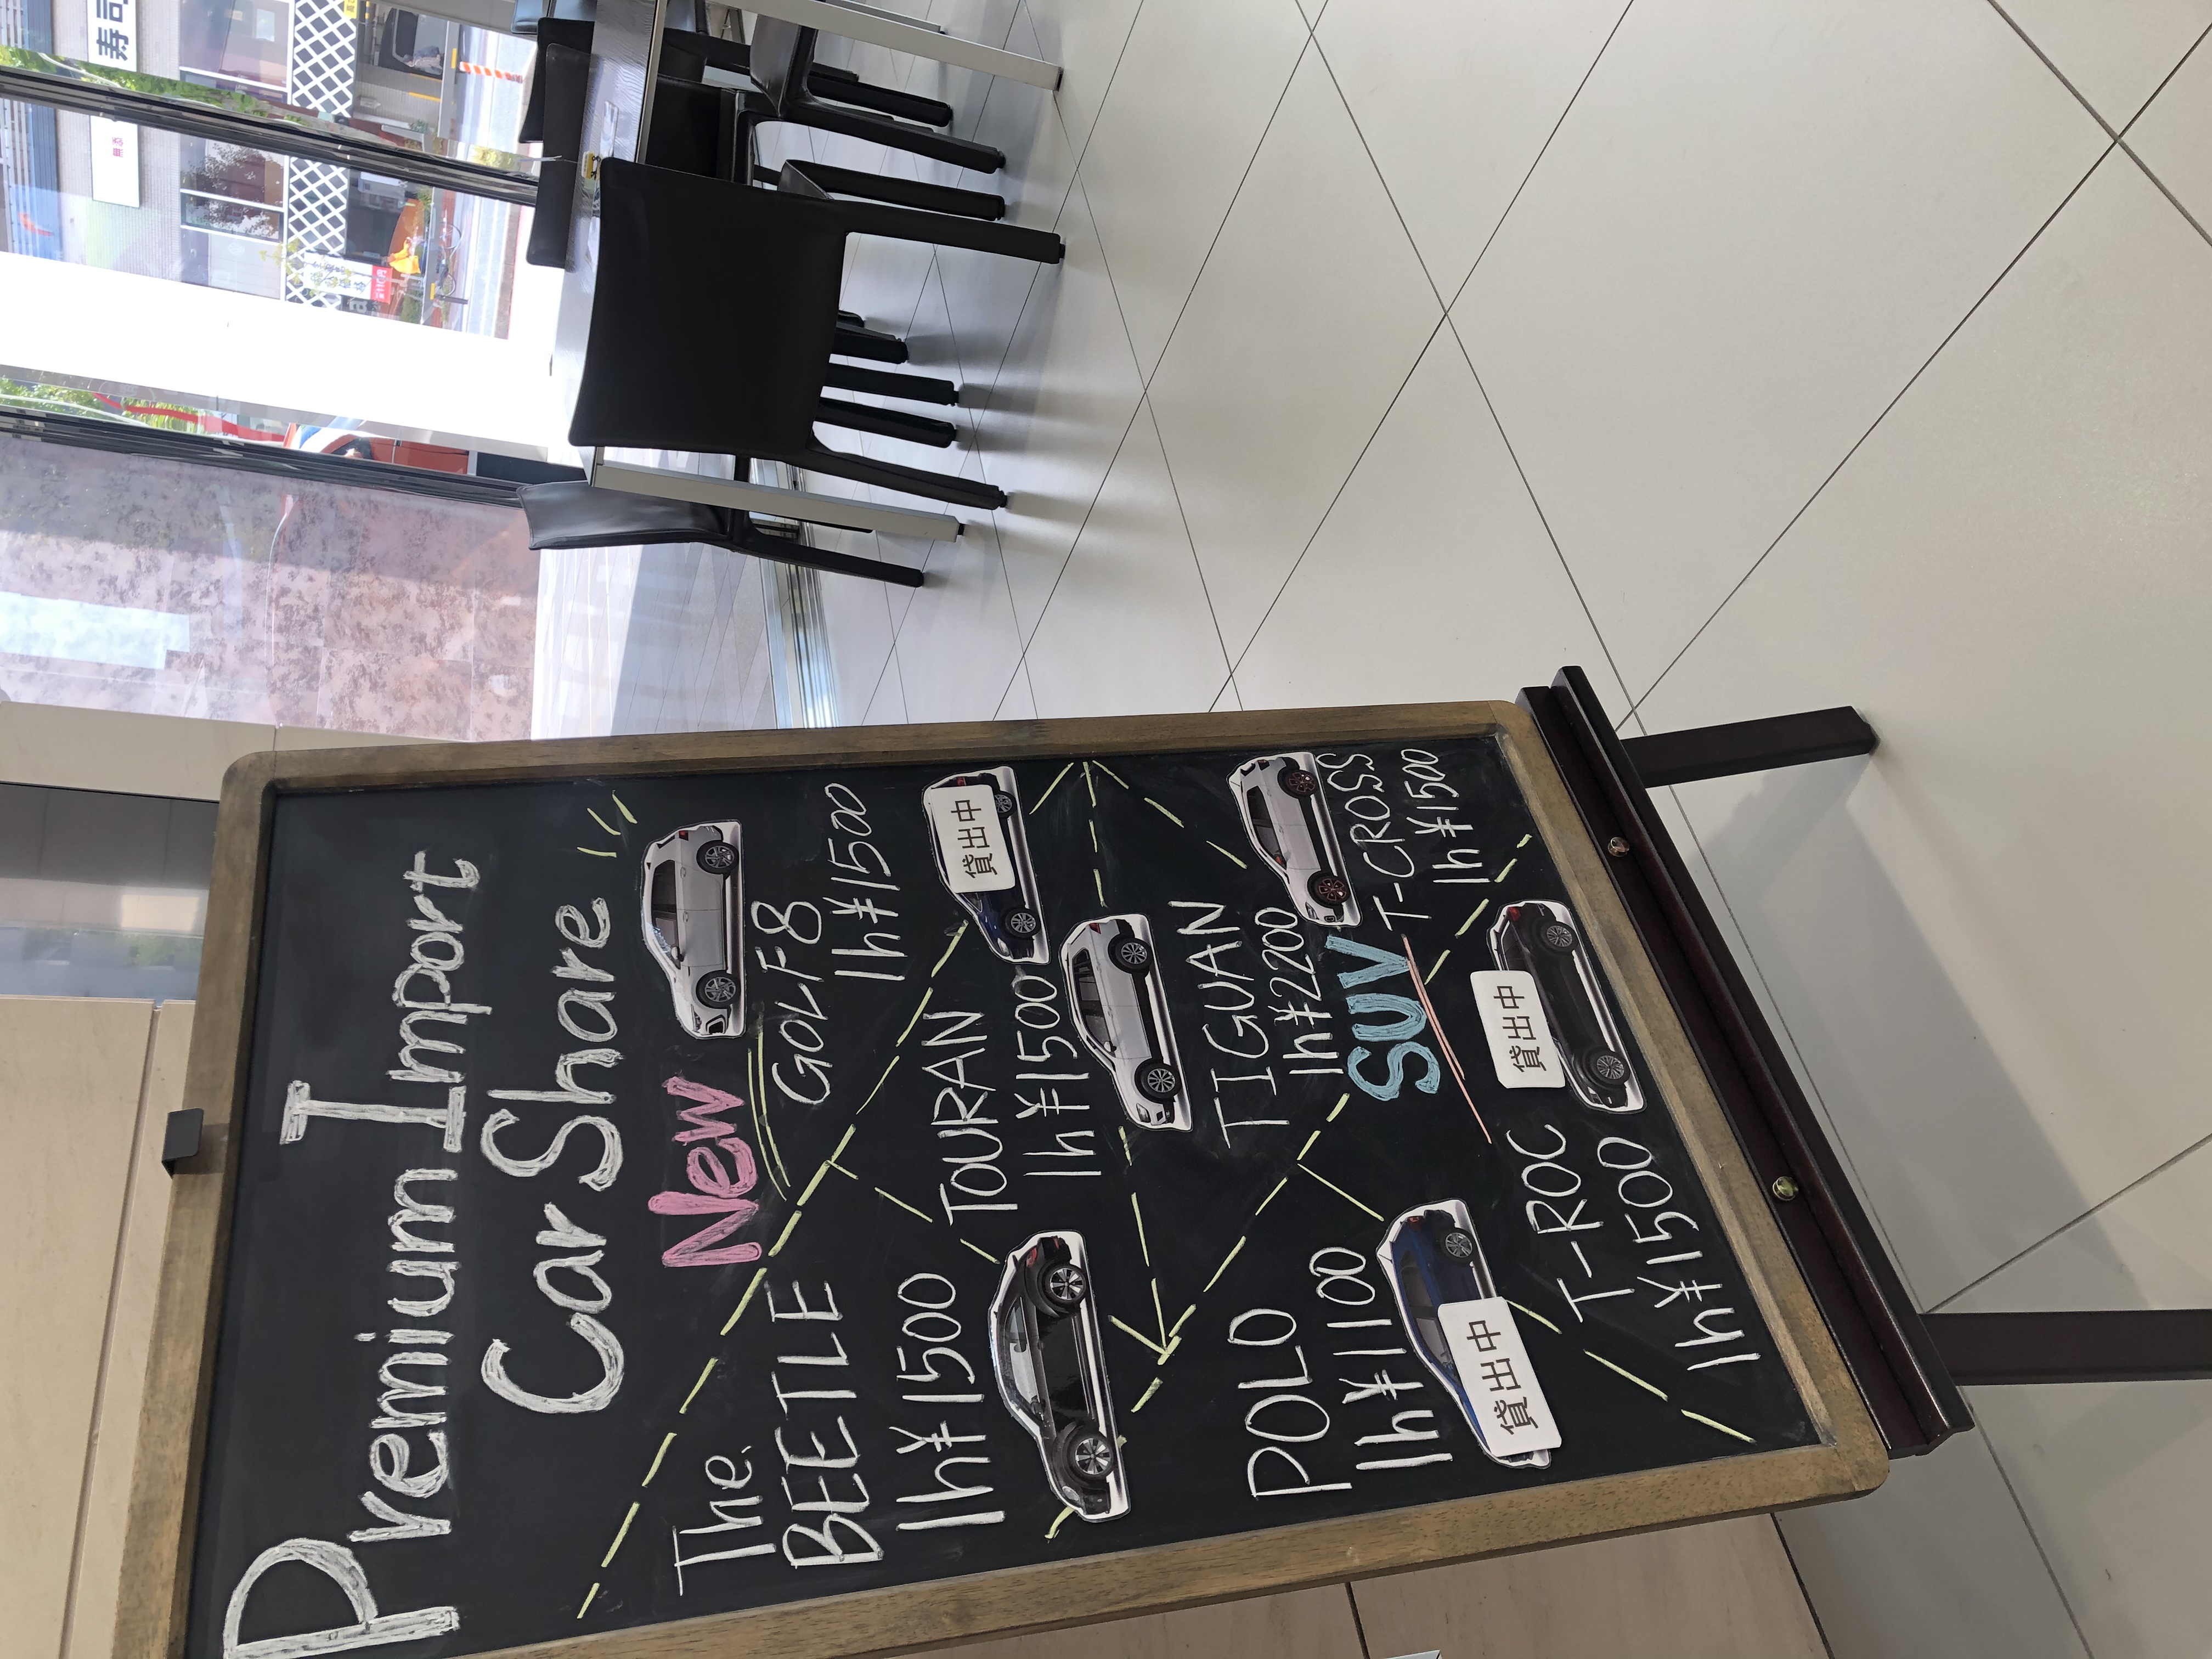 Premium Import
Car Share
New
The
BEETLE
1h¥1500
GOLF8
1h¥1500
TOURAN
1h¥1500
貸出中
TIGUAN
1h¥2200
POLO
1h¥1100
貸出中
SUV
T-CROSS
1h¥1500
T-ROC
1h¥1500
貸出中
寿司